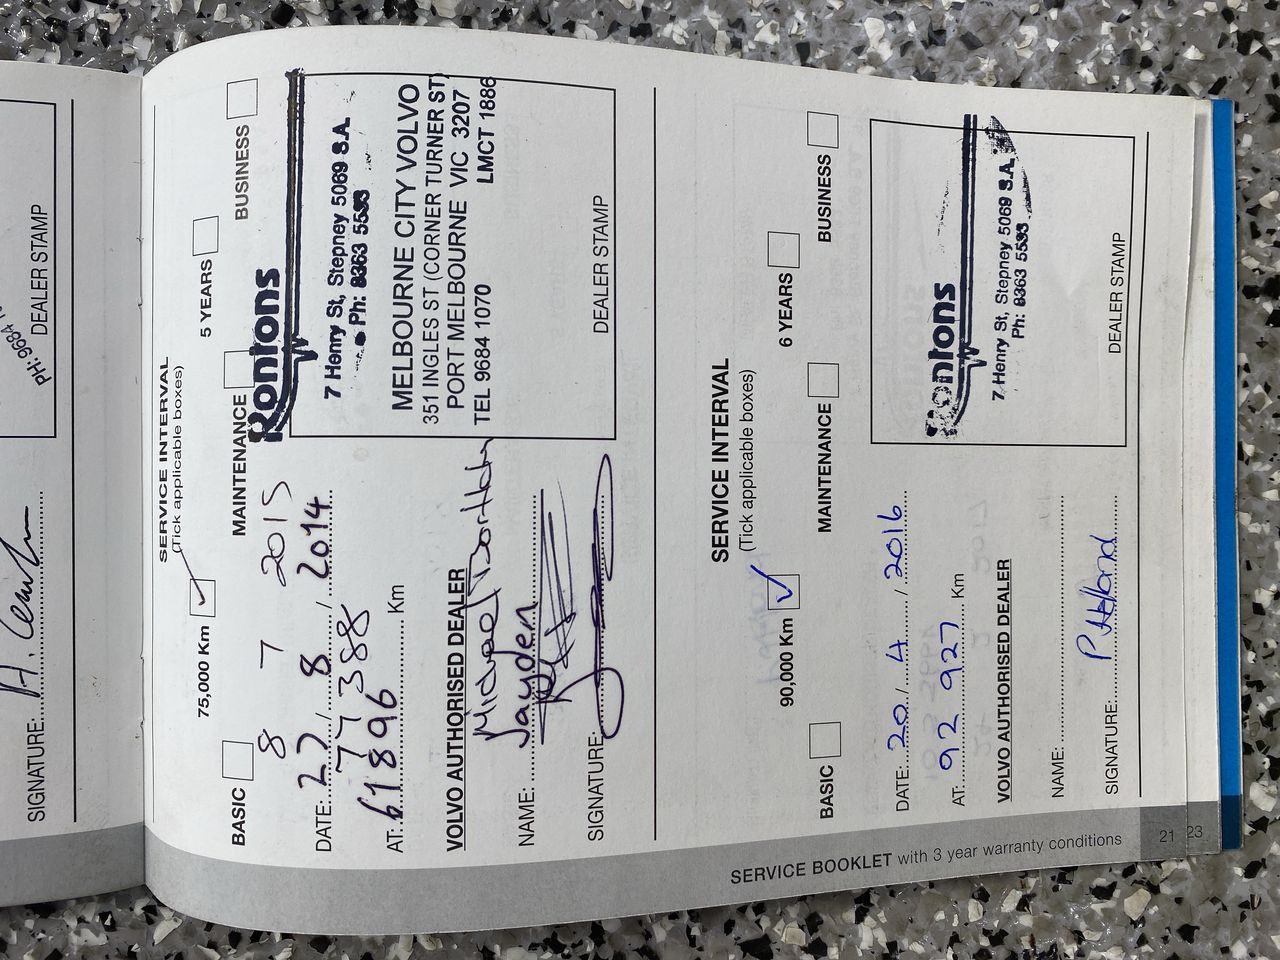 PH: 9684
DEALER STAMP
H.
SIGNATURE:
SERVICE INTERVAL
(Tick applicable boxes)
75,000 Km ✓ 5 YEARS
BASIC MAINTENANCE BUSINESS
8 7 2015
DATE: 27 / 8 / 2014
77 388
AT: 61896 Km
VOLVO AUTHORISED DEALER
Michael
NAME: Jayden
SIGNATURE:
Rontons
7 Henry St, Stepney 5069 S.A.
Ph: 8363 5533
MELBOURNE CITY VOLVO
351 INGLES ST (CORNER TURNER ST)
PORT MELBOURNE VIC 3207
TEL 9684 1070 LMCT 1886
DEALER STAMP
SERVICE INTERVAL
(Tick applicable boxes)
90,000 Km ✓ 6 YEARS
BASIC MAINTENANCE BUSINESS
DATE: 20 / 4 / 2016
AT: 92 927 Km
VOLVO AUTHORISED DEALER
NAME:
SIGNATURE: P.
Rontons
7 Henry St, Stepney 5069 S.A.
Ph: 8363 5533
DEALER STAMP
SERVICE BOOKLET with 3 year warranty conditions 21
23